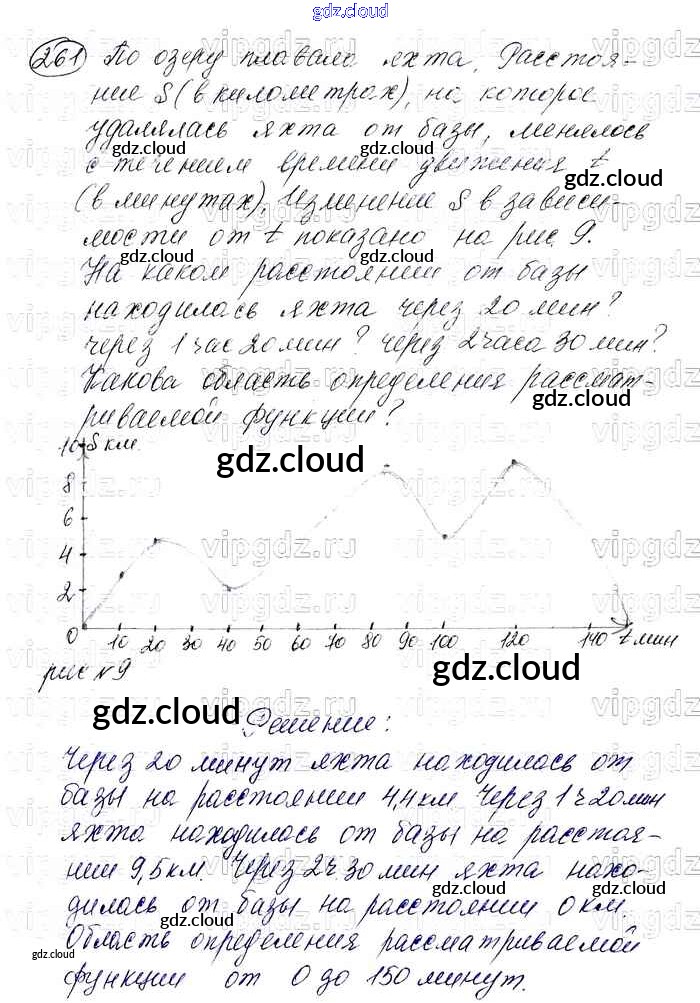 gdz.cloud
261 По озеру плавала яхта. Расстоя-
ние S (в километрах), на которое
удалялась яхта от базы, менялось
с течением времени движения t
(в минутах). Изменение S в зависи-
мости от t показано на рис 9.
На каком расстоянии от базы
находилась яхта через 20 мин?
через 1 час 20 мин? через 2 часа 30 мин?
Какова область определения рассмат-
риваемой функции?
10 S км
8
6
4
2
0 10 20 30 40 50 60 70 80 90 100 120 140 t мин
рис №9
gdz.cloud
Решение:
Через 20 минут яхта находилась от
базы на расстоянии 4,4 км Через 1 ч 20 мин
яхта находилась от базы на расстоя-
нии 9,5 км. Через 2 ч 30 мин яхта нахо-
дилась от базы на расстоянии 0 км.
Область определения рассматриваемой
функции от 0 до 150 минут.